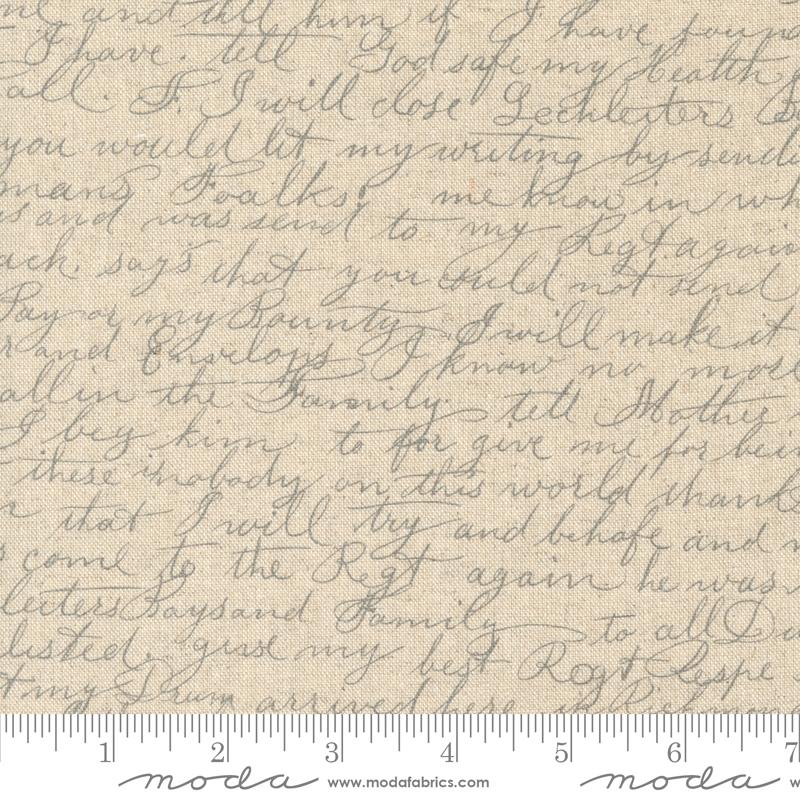 and tell him if I have found
I have. tell God safe my Health
all. F. I will close Lechleiters
you would let my writing by sendi
mans Foalks. me know in wh
is and was send to my Regt. again
ack. says that you could not send
Pay or my Bounty, I will make it
r and Envelops I know no more
all in the Family. tell Mother
I beg him to for give me for bein
these is nobody on this world thank
that I will try and behafe and
s come to the Regt again he was
leiters Says and Family to all
listed. give my best Regt Respe
t my Drum arrived here in Richmon
1 2 3 4 5 6 7
moda www.modafabrics.com moda w